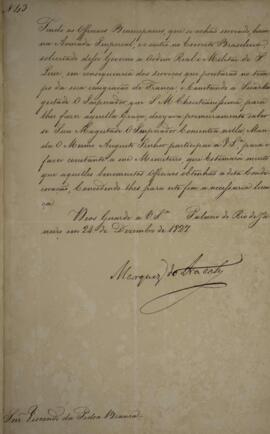 N 43
Tendo os Officiaes que se achão servindo, hum
na Armada Imperial, e outro no Exercito Brasileiro,
solicitado desse Governo a Ordem Real e Militar de S.
Luiz, em consequencia dos serviços que prestarão no tem
po da sua emigração de França, e constando a
que S. M. Christianissima, para
lhes fazer aquella Graça, desejava primeiramente saber
se Sua Magestade O Imperador Consentia nella: Man
da O Mesmo Augusto Senhor participar a V Sª para o
fazer constante a esse Ministerio que Estimará muito
que aquelles benemeritos Officiaes obtenhão a dita Conde
coração, Concedendo-lhes para este fim a necessaria licen
ça.
Deos Guarde a V. Sª. Palacio do Rio de Ja
neiro em 24 de Dezembro de 1827
Marquez do Aracaty
Snr. Visconde da Pedra Branca.